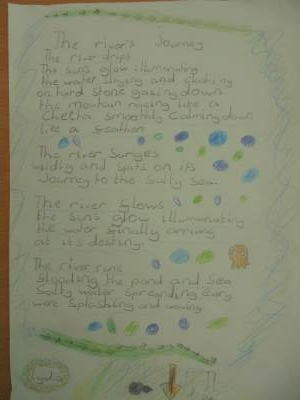 The river's Journey
The river drips
The sun's glow illuminating
the water linging and clashing
on hard stone gasing down
the moutain racing like a
Cheeta smoothly Calming down
like a feather
The river Surges
wildly and spits on its
Journey to the Salty Sea.
The river Glows
the sun's glow illuminating
the water finally arriving
at its destiny.
The river runs
flooding the pond and Sea
Salty water Spreading Early
wave Splashing and waving